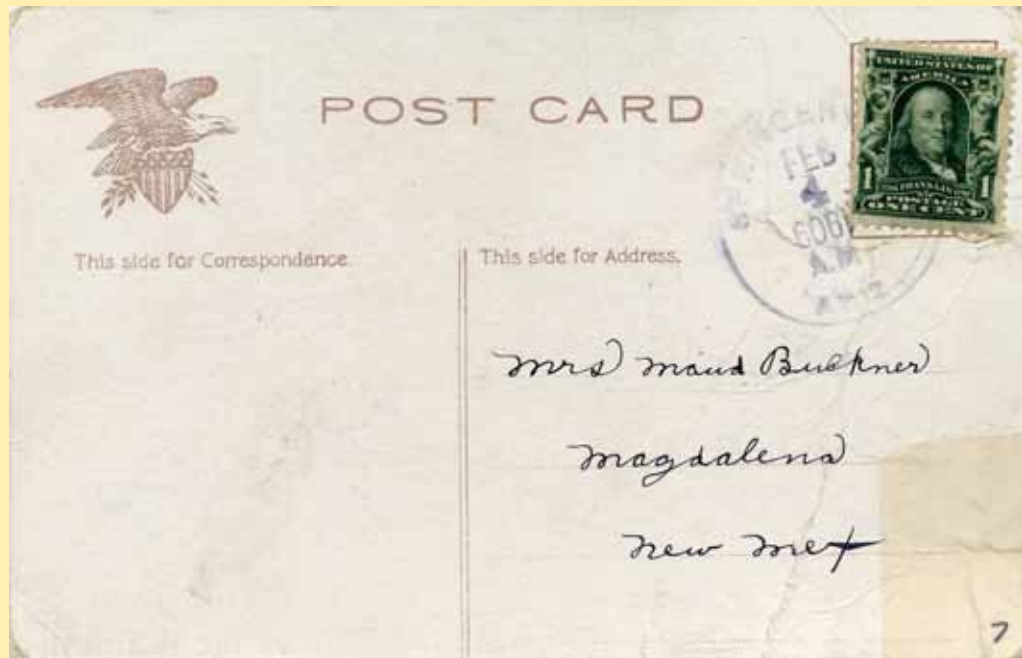 POST CARD
This side for Correspondence.
This side for Address.
UNITED STATES OF
AMERICA
1 FRANKLIN 1
POSTAGE
ONE CENT
FEB
4
A.M.
ARIZ.
Mrs Maud Buckner
Magdalena
New Mex
7